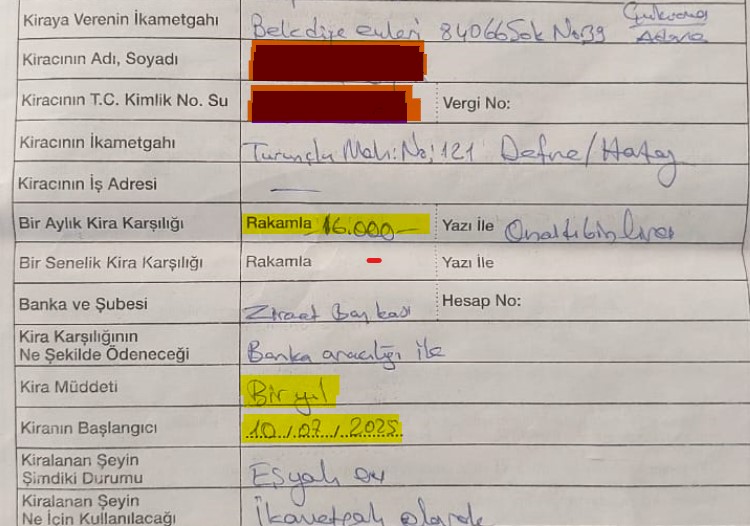 Kiraya Verenin İkametgahı Belediye evleri 84066 Sok No:39 Çukurova Adana
Kiracının Adı, Soyadı
Kiracının T.C. Kimlik No. Su Vergi No:
Kiracının İkametgahı Turunçlu Mah: No: 121 Defne/Hatay
Kiracının İş Adresi —
Bir Aylık Kira Karşılığı Rakamla 16.000- Yazı İle Onaltıbinlira
Bir Senelik Kira Karşılığı Rakamla - Yazı İle
Banka ve Şubesi Ziraat Bankası Hesap No:
Kira Karşılığının
Ne Şekilde Ödeneceği Banka aracılığı ile
Kira Müddeti Bir yıl
Kiranın Başlangıcı 10/07/2025
Kiralanan Şeyin
Şimdiki Durumu Eşyalı ev
Kiralanan Şeyin
Ne İçin Kullanılacağı İkametgah olarak